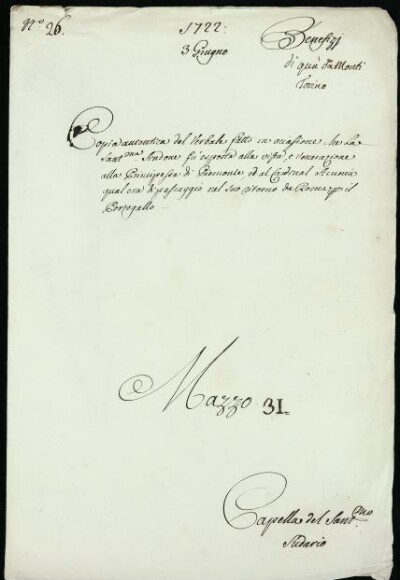 N.o 26.
1722:
3 Giugno
Benefizj
di quà da Monti
Torino
Copia autentica del Verbale fatto in occasione che la
Sant.ma Sindone fù esposta alla vista, e Venerazione
alla Principessa di Piemonte, ed al Cardinal
qual era di passaggio nel suo ritorno da Roma p il
Portogallo
Mazzo 31.
Capella del Sant.mo
Sudario